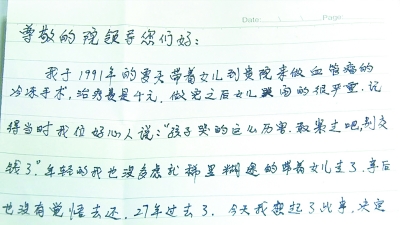 Date: Page:
尊敬的院领导您们好:
我于1991年的夏天带着女儿到贵院来做血管瘤的
冷冻手术,治疗费是千元,做完之后女儿哭闹的很严重.记
得当时我位好心人说:“孩子哭的这么历害.敢紧走吧,别交
钱了.”年轻的我也没多虑就稀里糊塗的带着女儿走了.事后
也没有觉悟去还.27年过去了.今天我想起了此事.决定